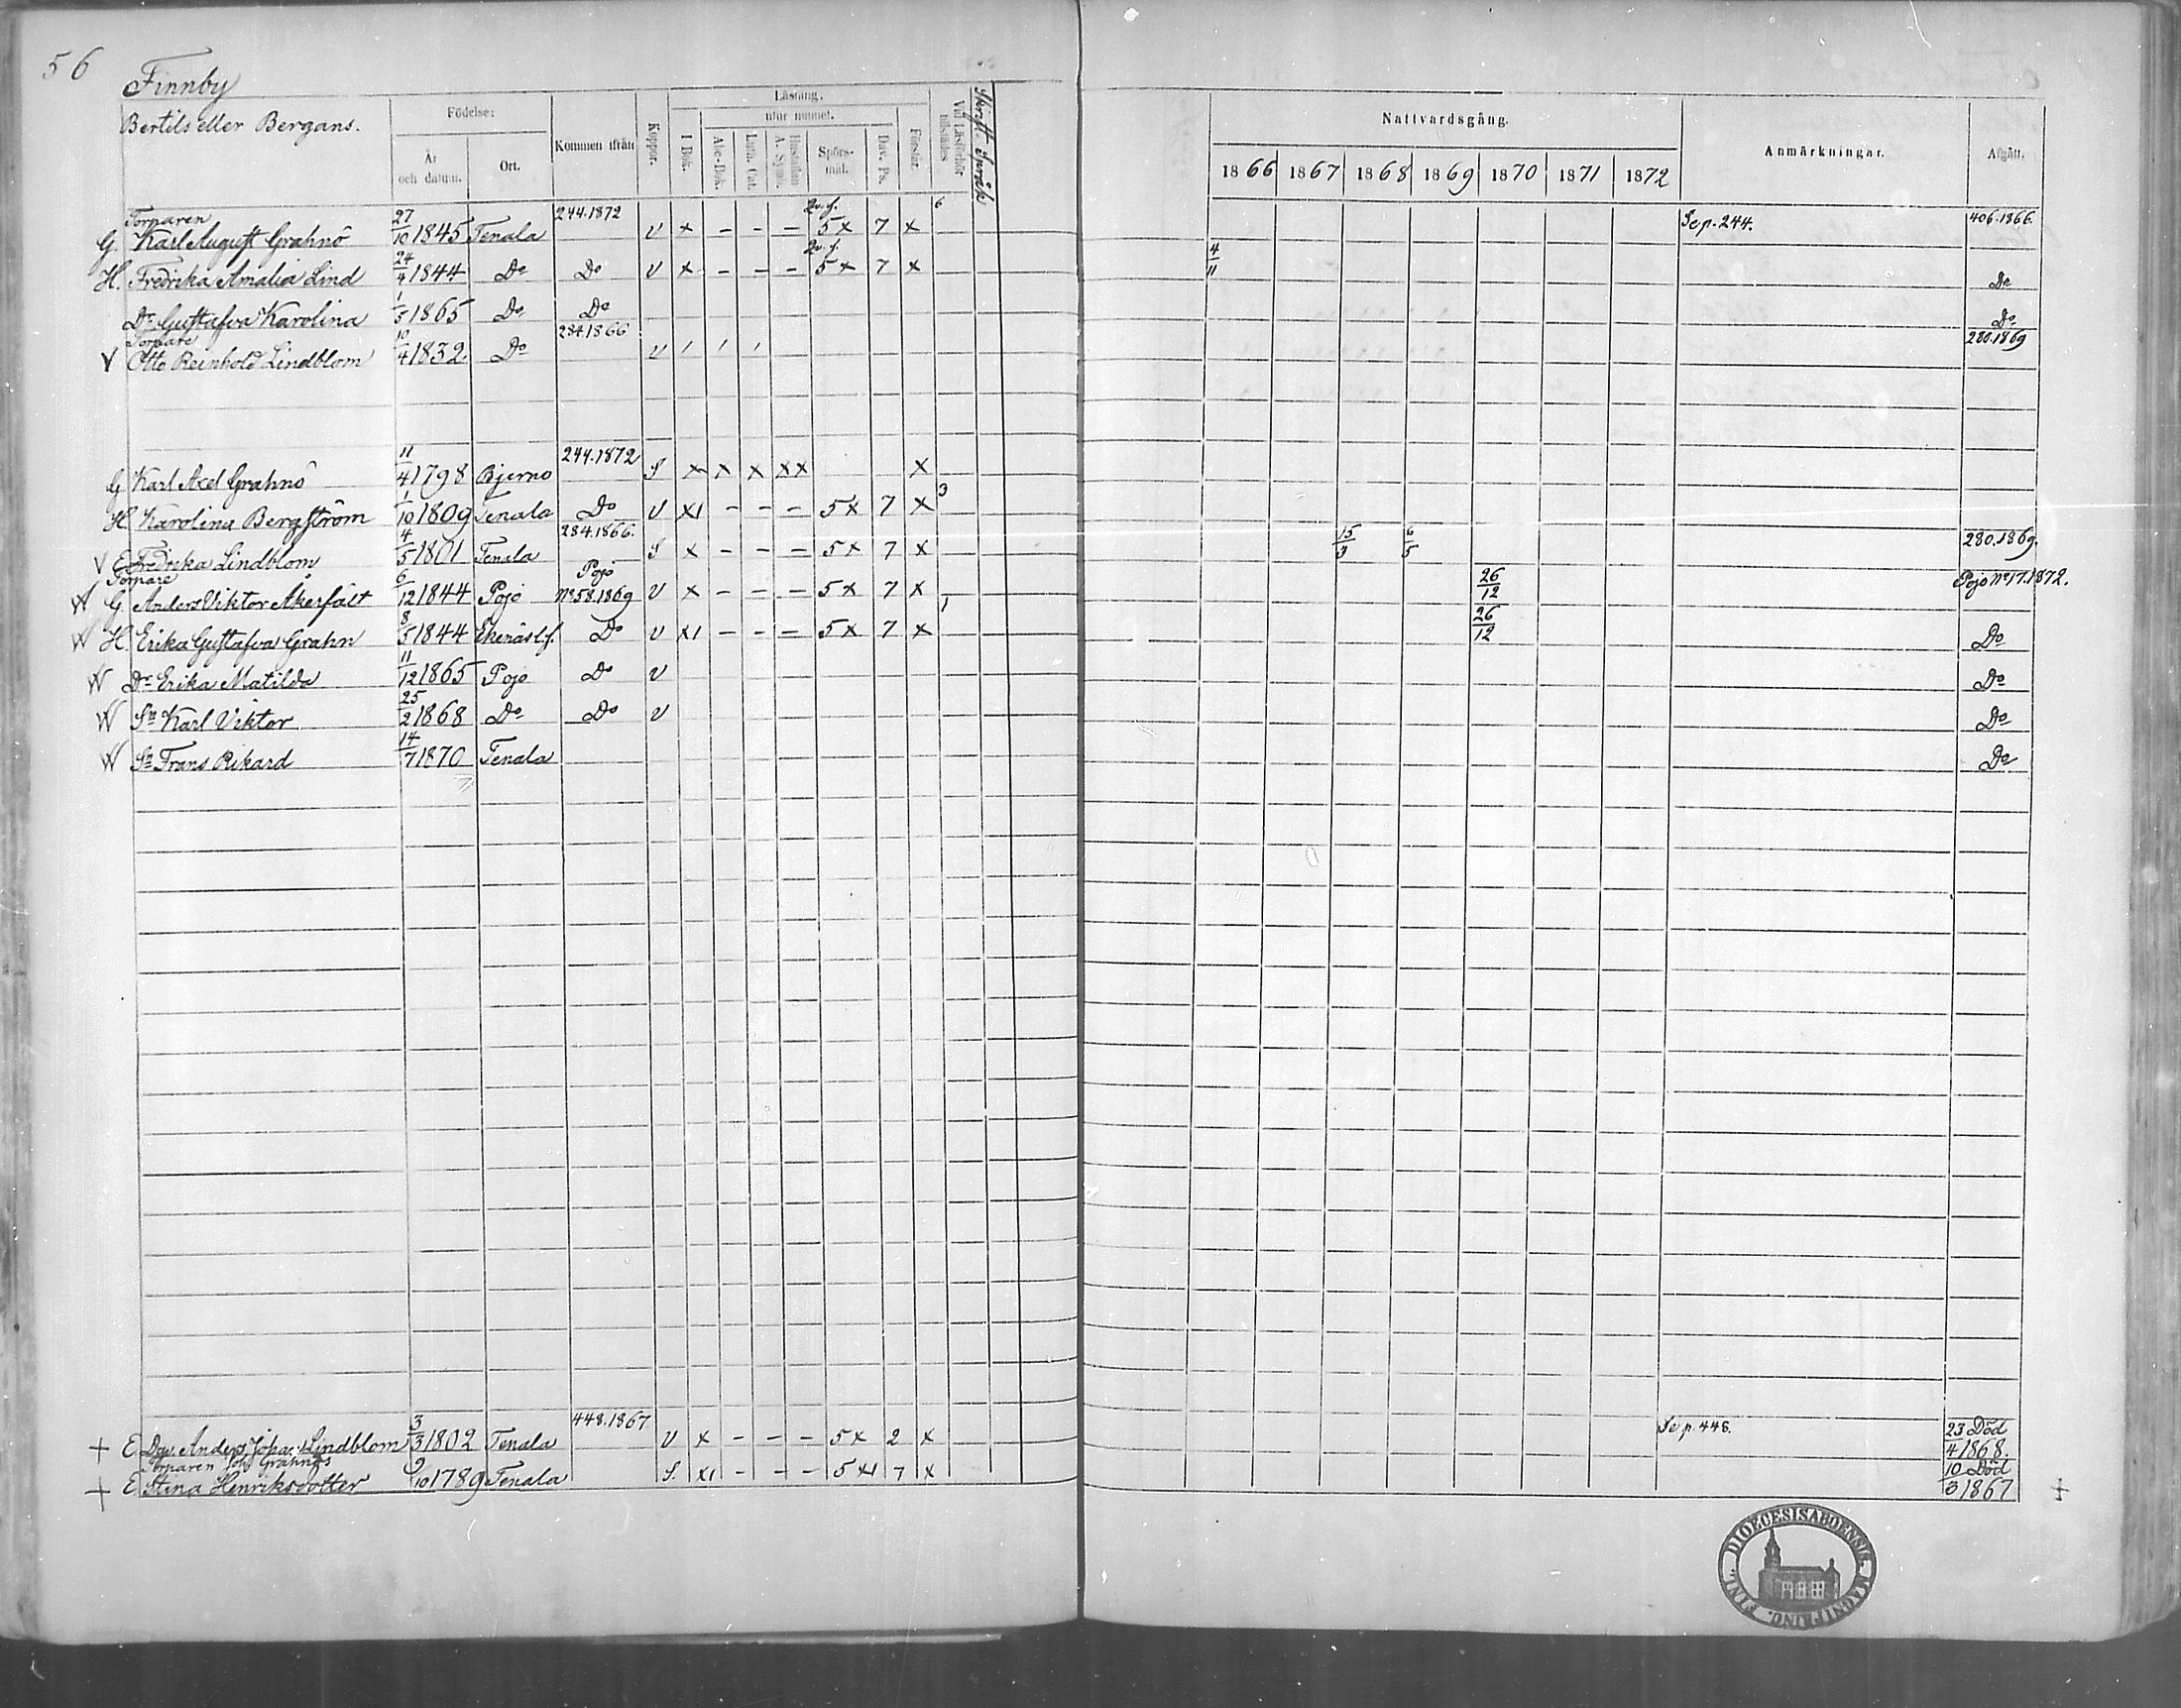 56
Finnby
Bertils eller Bergans.
Födelse: År och datum. Ort. Kommen ifrån Koppor. Läsning. I Bok. utur minnet. Abc-Bok. Luth. Cat. Hustaflan A. Symb. Spörs-mål. Dav. Ps. Förstår. Vid Läsförhör tillstädes
Nattvardsgång. 1866 1867 1868 1869 1870 1871 1872 Anmärkningar. Afgått.
Torparen 27 244.1872 6 406.1866.
G. Karl August Grahnö 10 1845 Tenala v x - - - 5x 7 x Se p. 244.
H. Fredrika Amalia Lind 24/4 1844 Do Do v x - - - 5x 7 x 4/11 Do
Dr Gustafva Karolina 1/5 1865 Do Do Do
Torpare 10 284.1866 280.1869
V Otto Reinhold Lindblom 4 1832 Do v / / /
G Karl Axel Grahnö 11/4 1798 Bjerno 244.1872 S x x x xx x
H Karolina Bergström 1/10 1809 Tenala Do v x1 - - - 5x 7 x 3
V E Fredrika Lindblom 4/5 1801 Tenala 284.1866. S x - - - 5x 7 x 15/3 6/5 280.1869.
Torpare 6 Pojo 26 Pojo No 17.1872.
W G Anders Viktor Åkerfält 12 1844 Pojo No 58.1869 v x - - - 5x 7 x 12
W H. Erika Gustafva Grahn 8/5 1844 Ekenäs l.f. Do v x1 - - - 5x 7 x 1 26/12 Do
W Dr Erika Matilda 11/12 1865 Pojo Do v Do
W Sn Karl Viktor 25/2 1868 Do Do v Do
W Sn Frans Rikard 14/7 1870 Tenala Do
+ E Anders Lindblom 3/3 1802 Tenala 448.1867 v x - - - 5x 2 x Se p. 448. 23 Död 4 1868.
Torparen Grahnös 9 10 Död
+ E Stina Henriksdotter 10 1789 Tenala S. x1 - - - 5x1 7 x 3 1867 +
DIOECESIS ABOENSIS MAGNI PRINC. FINL.